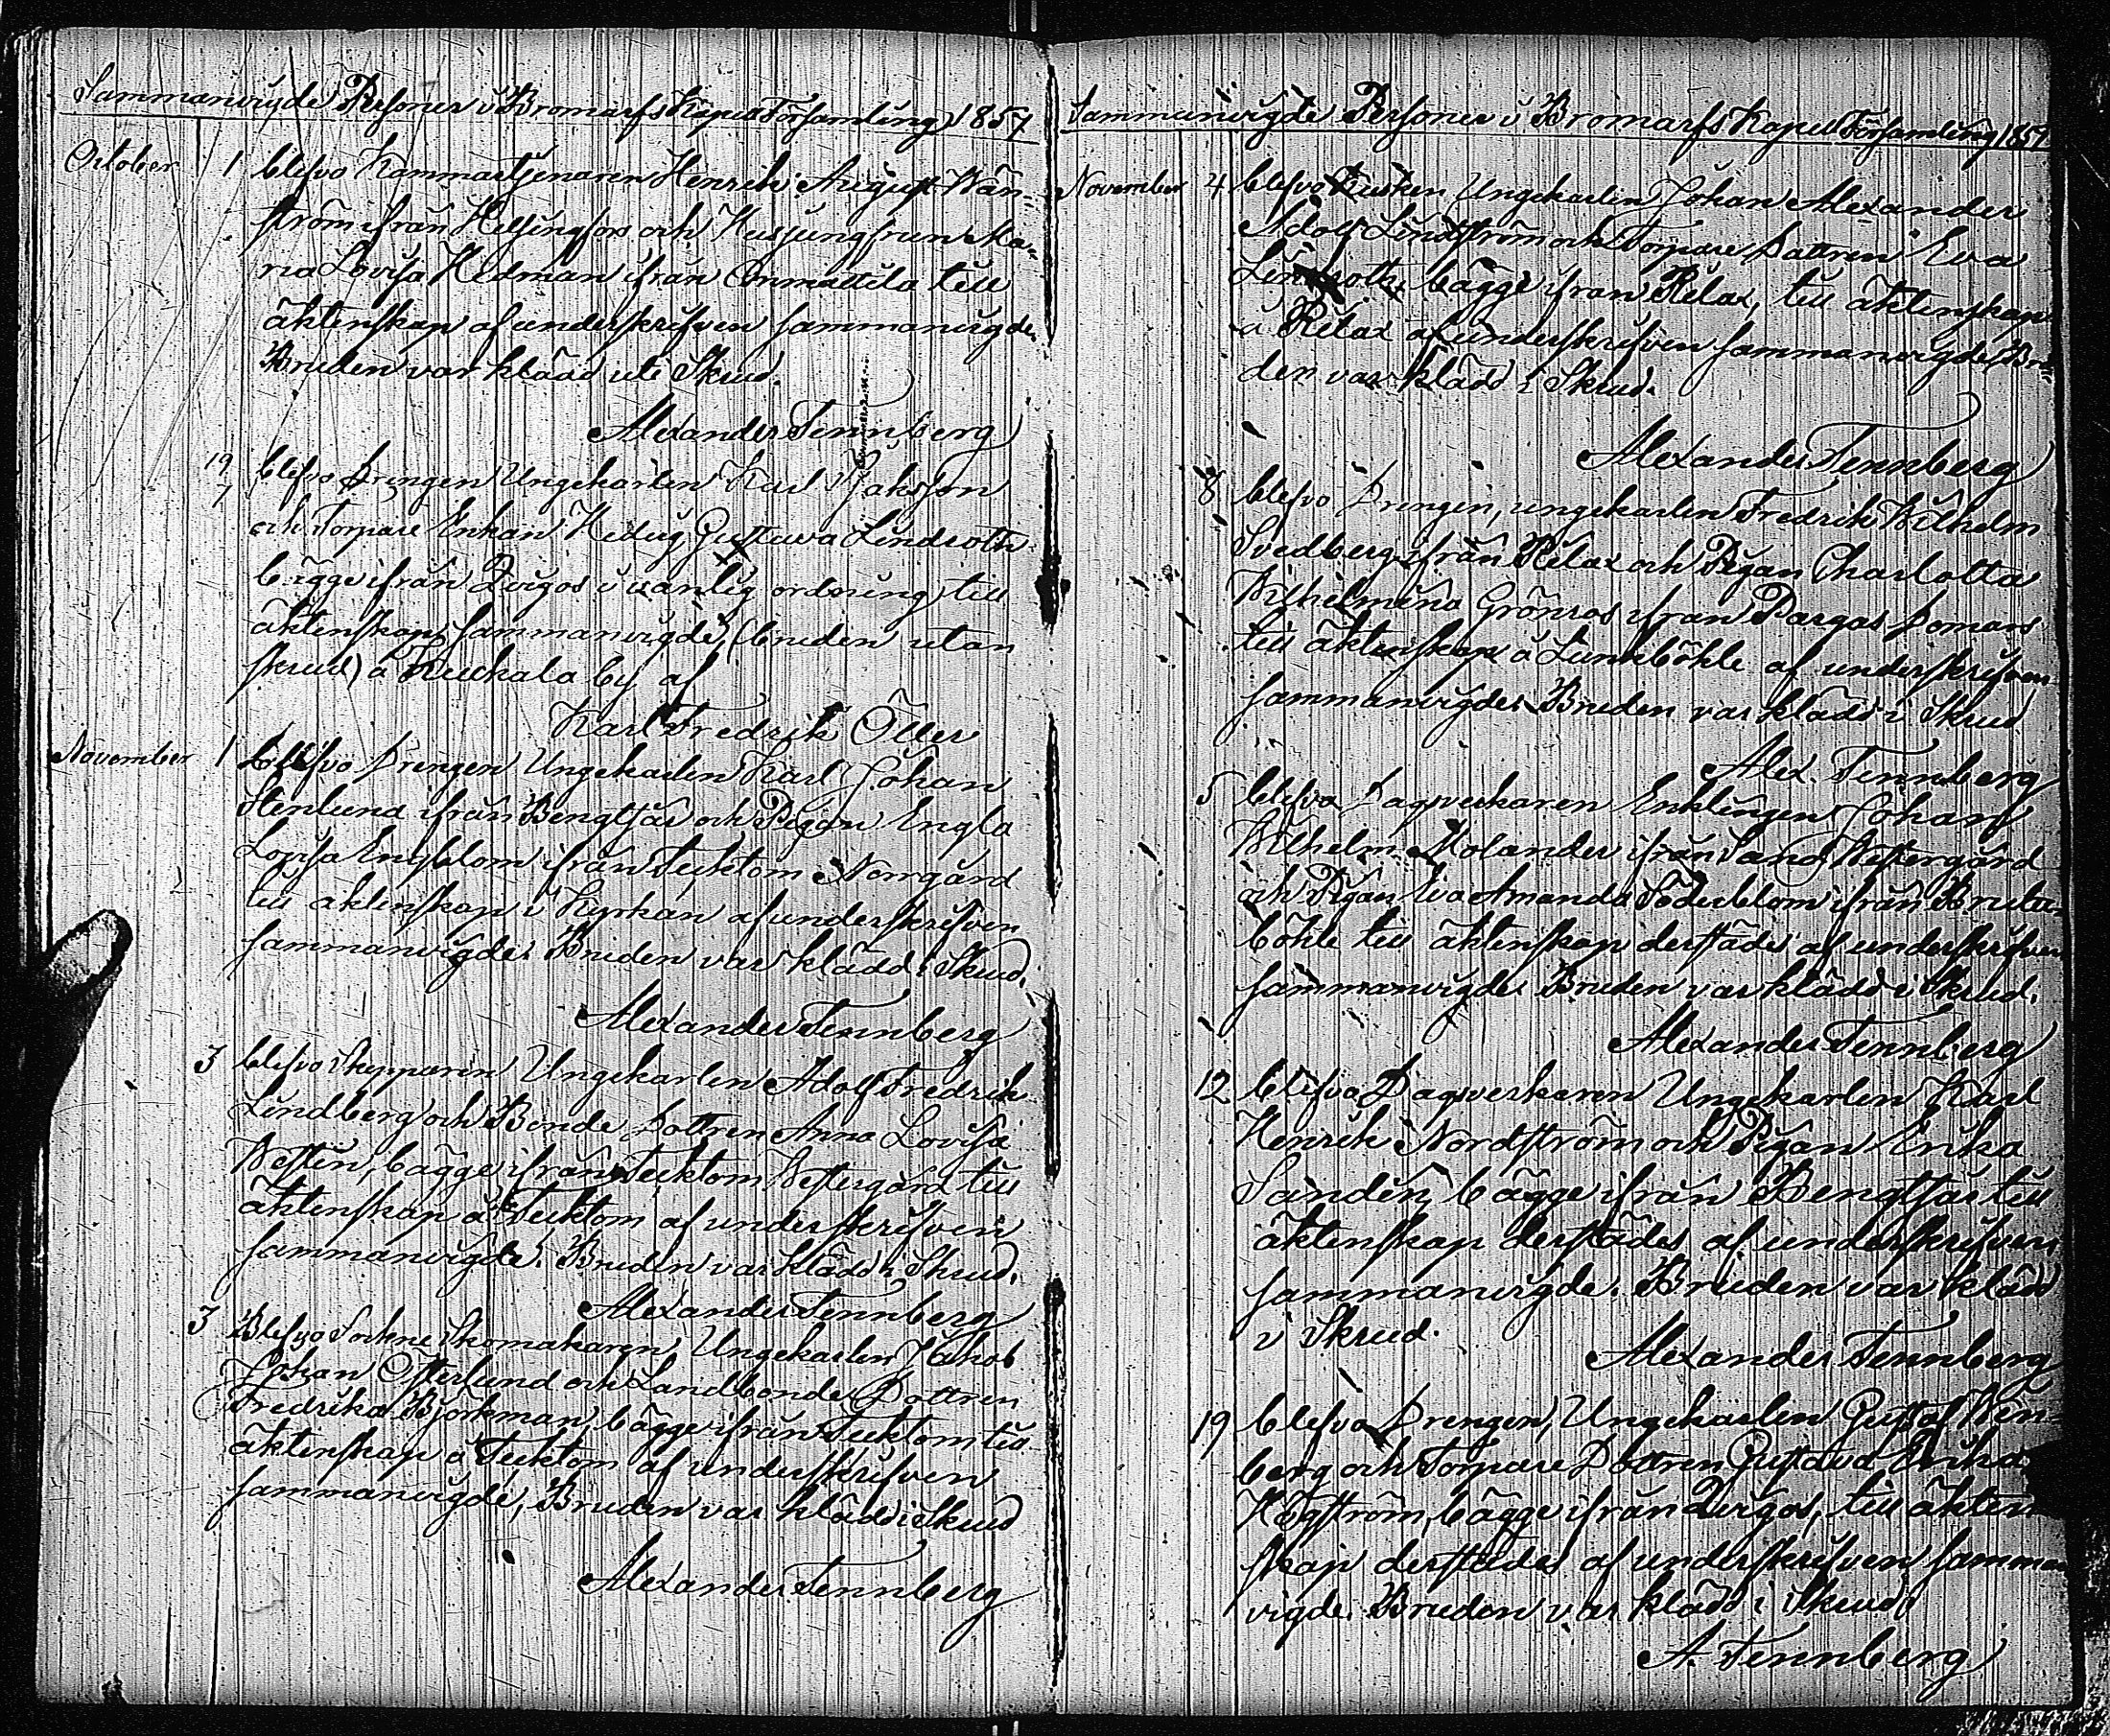 Sammanvigde Personer i Bromarfs Kapell Församling 1857
October 1 blefvo Kammartjenaren Henrik August Wän=
ström ifrån Helsingfors och Husjungfrun Ma=
ria Lovisa Hedman ifrån till
äktenskap af underskrifven sammanvigde
Bruden var klädd ute Skrud.
Alexander Tennberg
19 blefvo Drengen Ungekarlen Karl
och Torpare Enkan Hedvig Gustava Lindroth
bägge ifrån Qvigos i vanlig ordning till
äktenskap sammanvigde, (bruden utan
skrud) å by af
Karl Fredrik Öller
November 1 blefvo Drengen Ungekarlen Karl Johan
Stenlund ifrån Bengtsår och Pigan Engla
Lovisa Engblom ifrån Tecktom Norrgård
till äktenskap i Kyrkan af underskrifven
sammanvigde. Bruden var klädd i Skrud.
Alexander Tennberg
3 blefvo Skepparen Ungekarlen Adolf Fredrik
Lindberg och Bonde Dottren Anna Lovisa
Westen, bägge ifrån Tecktom Westergård till
äktenskap å Tecktom af underskrifven
sammanvigde. Bruden var klädd i Skrud.
Alexander Tennberg
3 Blefvo Sockne Skomakaren, Ungekarlen Jakob
Johan Österlund och Landbonde Dottren
Fredrika Björkman, bägge ifrån Tecktom till
äktenskap å Tecktom af underskrifven
sammanvigde, Bruden var klädd i Skrud
Alexander Tennberg
Sammanvigde Personer i Bromarfs Kapell Församling 1857
November 4 blefvo Kusken Ungekarlen Johan Alexander
Adolf Lindström och Torpare Dottren Eva
bägge ifrån Rilax, till äktenskap
å Rilax af underskrifven sammanvigde, Bru=
den var klädd i Skrud.
Alexander Tennberg
8 blefvo Drengen, ungekarlen Fredrik Wilhelm
Svedberg ifrån Rilax och Pigan Charlotta
Wilhelmina Grönros ifrån Pargas Domars
till äktenskap å Lunkböhle af underskrifven
sammanvigde. Bruden var klädd i Skrud
Alex. Tennberg
5 blefvo Dagverkaren Enklingen Johan
Wilhelm Molander ifrån Sand Westergård
och Pigan Eva Amanda Söderblom ifrån
böhle till äktenskap derstädes af underskrifven
sammanvigde. Bruden var klädd i Skrud.
Alexander Tennberg
12 blefvo Dagsverkaren Ungekarlen Karl
Henrik Nordström och Pigan Erika
Sandén, bägge ifrån Bengtsår till
äktenskap derstädes af underskrifven
sammanvigde. Bruden var klädd
i Skrud.
Alexander Tennberg
19 blefvo Drengen, Ungekarlen Gustaf Wen
berg och Torpare Dottren Gustava Erika
Högström, bägge ifrån Qvigos, till äkten
skap derstädes af underskrifven samman
vigde. Bruden var klädd i Skrud
A. Tennberg